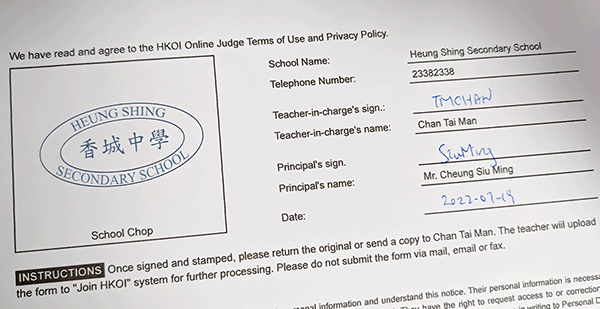 We have read and agree to the HKOI Online Judge Terms of Use and Privacy Policy.
HEUNG SHING
香城中學
SECONDARY SCHOOL
School Chop
School Name: Heung Shing Secondary School
Telephone Number: 23382338
Teacher-in-charge's sign.: TMCHAN
Teacher-in-charge's name: Chan Tai Man
Principal's sign. SiuMing
Principal's name: Mr. Cheung Siu Ming
Date: 2022-07-19
INSTRUCTIONS Once signed and stamped, please return the original or send a copy to Chan Tai Man. The teacher will upload
the form to "Join HKOI" system for further processing. Please do not submit the form via mail, email or fax.
information and understand this notice. Their personal information is
have the right to request access to or correction
in writing to Personal